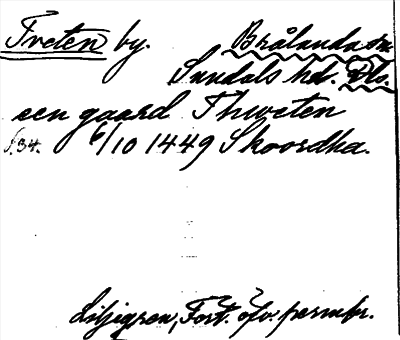 Tveten by. Brålanda sn
Sundals hd. Dls.
een gaard Thweten
s.34. 6/10 1449 Skoordha.
Liljegren, Fört. öfv. permbr.